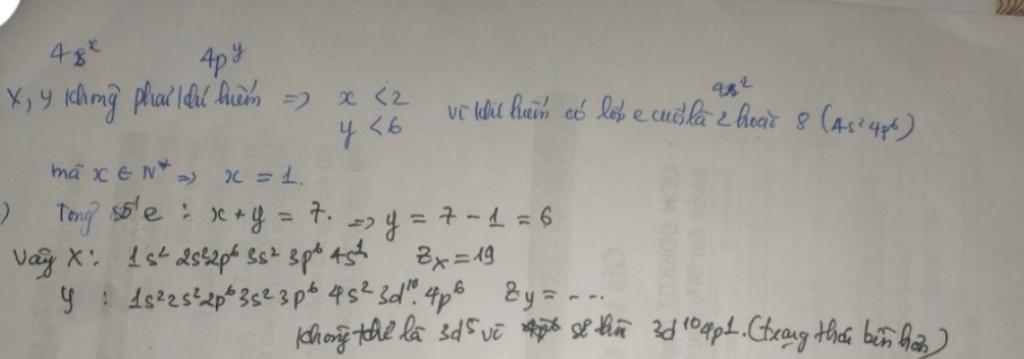 4s^x 4p^y
X, Y không phải khí hiếm => x < 2 vì khí hiếm có lớp e cuối là 2 hoặc 8 (4s² 4p⁶)
4s²
y < 6
mà x ∈ N* => x = 1.
) Tổng số e : x + y = 7. => y = 7 - 1 = 6
Vậy X: 1s² 2s² 2p⁶ 3s² 3p⁶ 4s¹ Z_X = 19
Y : 1s² 2s² 2p⁶ 3s² 3p⁶ 4s² 3d¹⁰. 4p⁶ Z_Y = ---
không thể là 3d⁵ vì sẽ 3d¹⁰ 4p1. (trạng thái bền hơn)